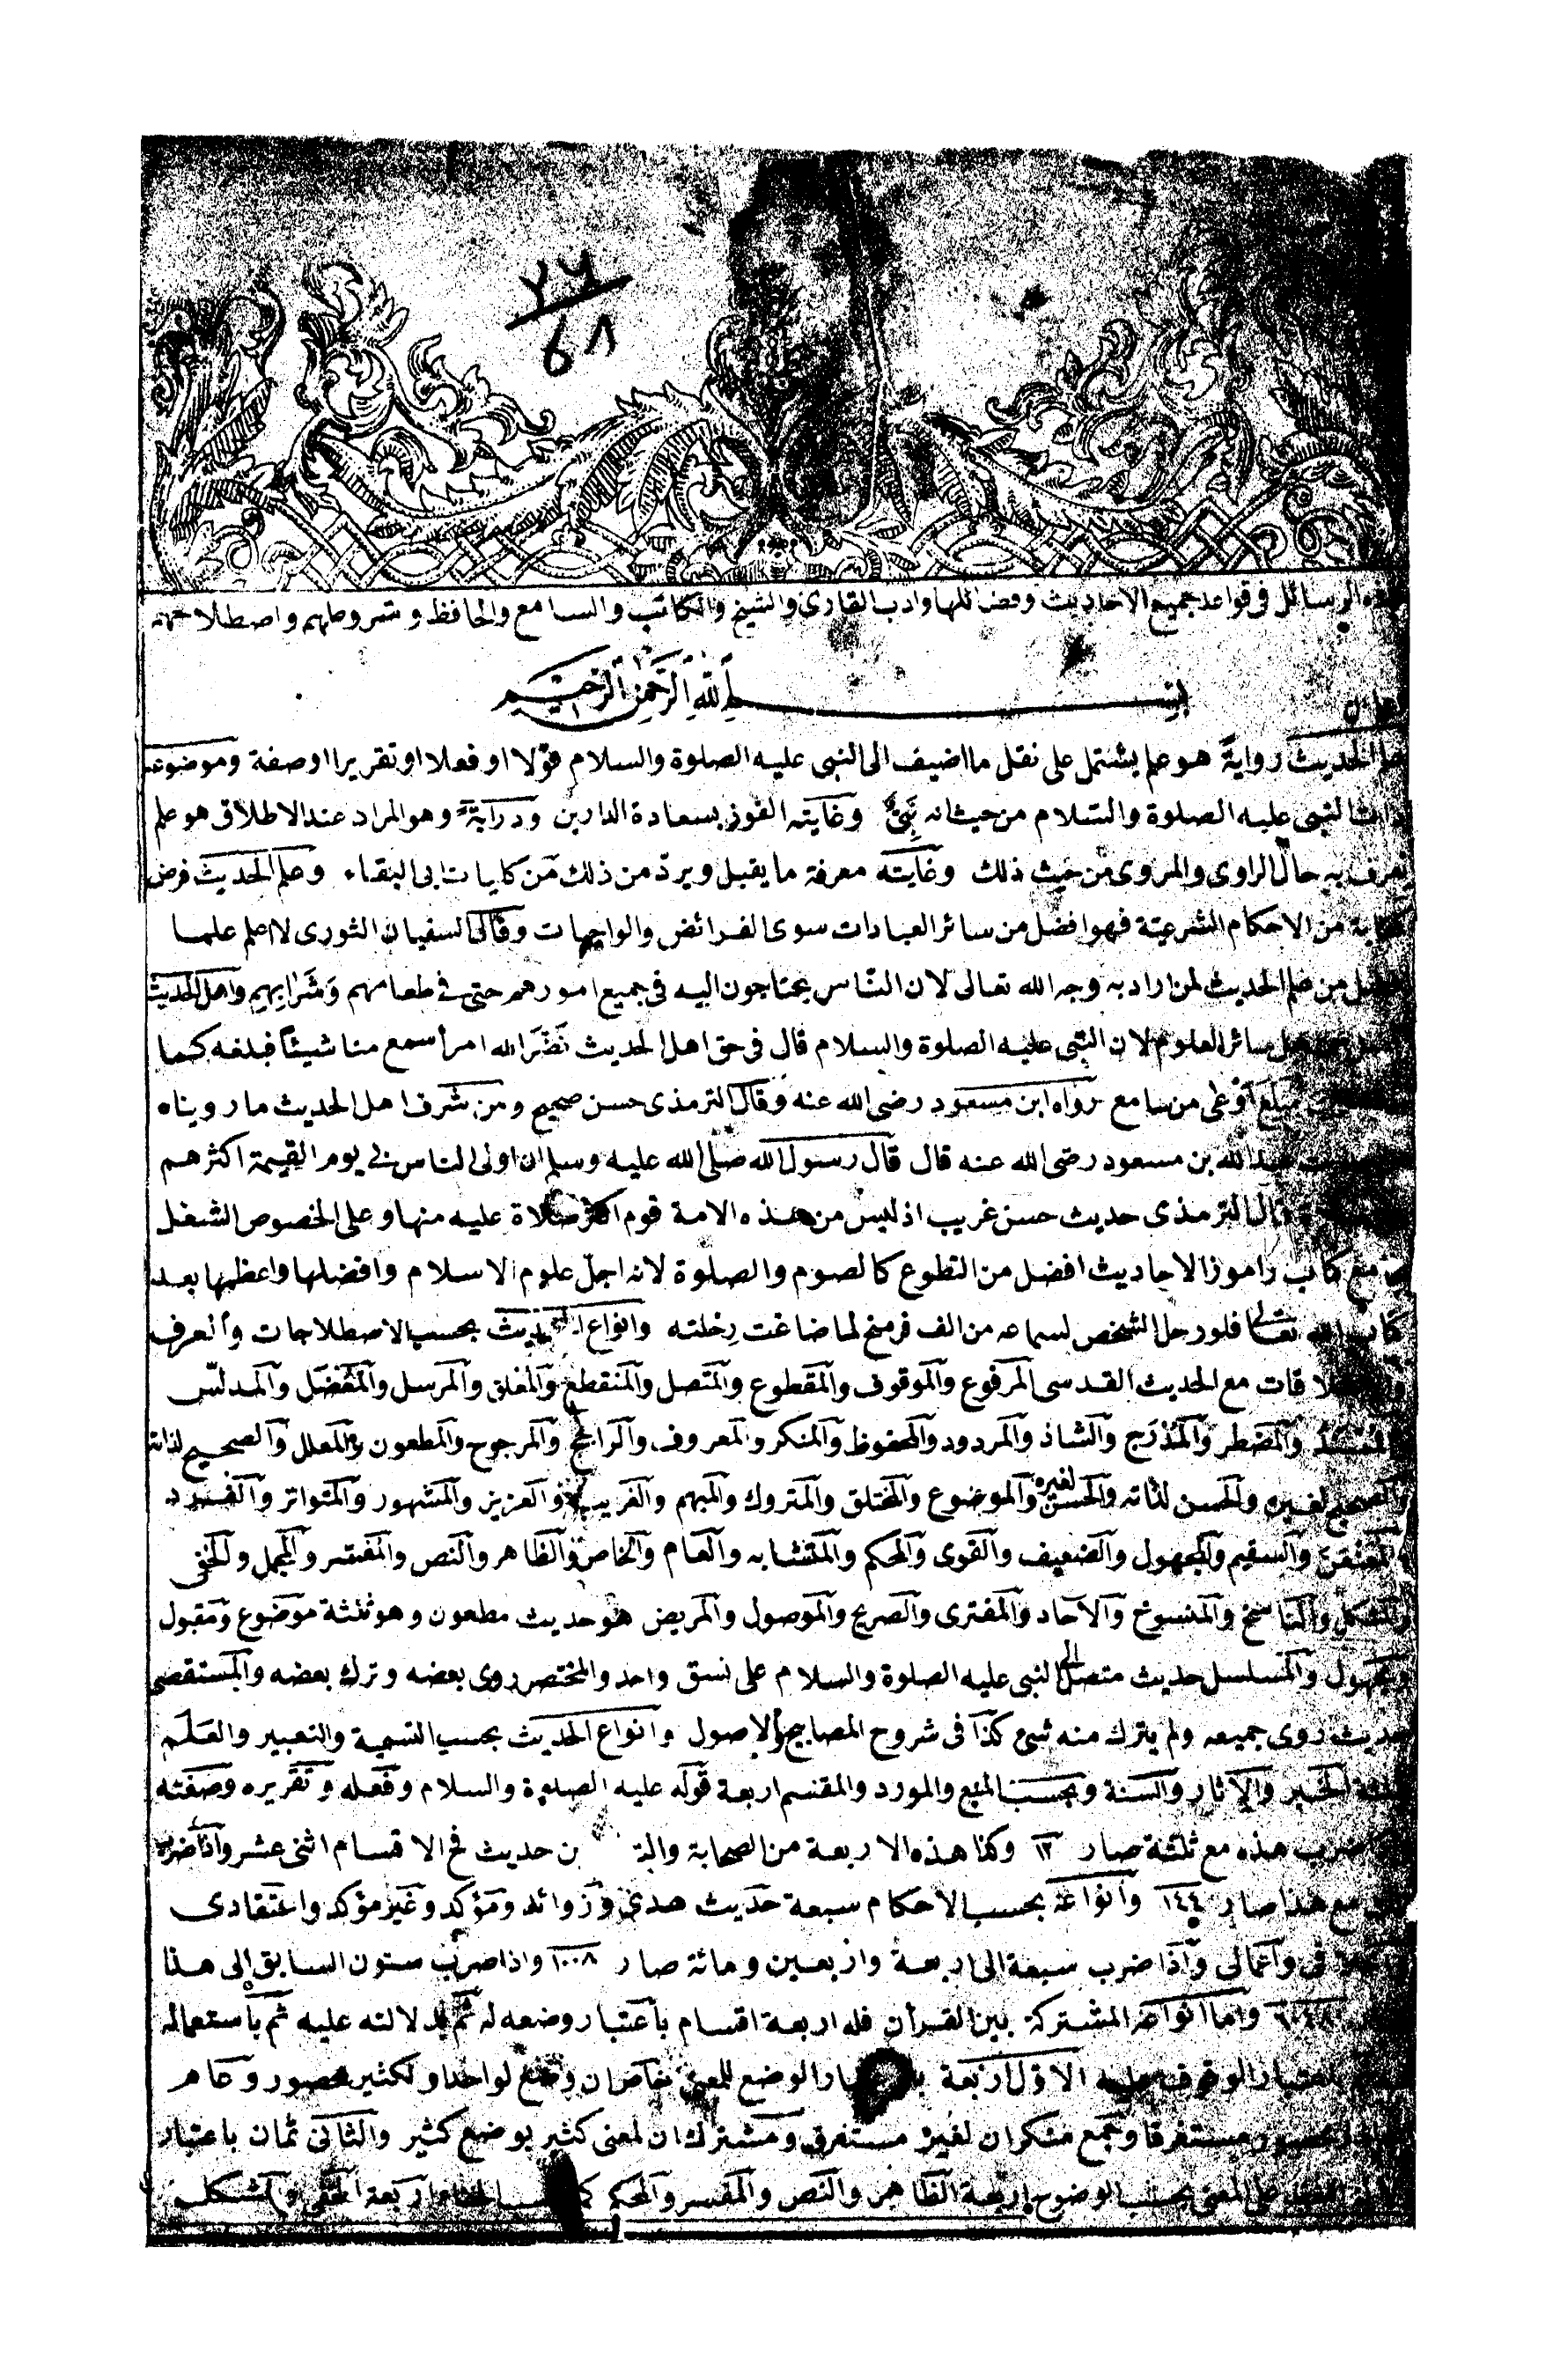 ٧٦
٦٨
الرسائل في قواعد جميع الاحاديث وفضائلها واداب القارئ والشيخ والكاتب والسامع والحافظ وشروطهم واصطلاحهم
بسم الله الرحمن الرحيم
علم الحديث رواية هو علم يشتمل على نقل ما اضيف الى النبى عليه الصلوة والسلام قولا او فعلا او تقريرا او صفة وموضوعه
ذات النبى عليه الصلوة والسلام من حيث انه نبى وغايته الفوز بسعادة الدارين ودراية وهو المراد عند الاطلاق هو علم
يعرف به حال الراوى والمروى من حيث ذلك وغايته معرفة ما يقبل ويرد من ذلك من كليات ابى البقاء وعلم الحديث فرض
كفاية من الاحكام الشرعية فهو افضل من سائر العبادات سوى الفرائض والواجبات وقال السفيان الثورى لا اعلم علما
افضل من علم الحديث لمن اراد به وجه الله تعالى لان الناس يحتاجون اليه فى جميع امورهم حتى فى طعامهم وشرابهم واهل الحديث
سائر العلوم لان النبى عليه الصلوة والسلام قال فى حق اهل الحديث نضر الله امرأ سمع منا شيئا فبلغه كما
مبلغ اوعى من سامع رواه ابن مسعود رضى الله عنه وقال الترمذى حسن صحيح ومن شرف اهل الحديث ما رويناه
عبد الله بن مسعود رضى الله عنه قال قال رسول الله صلى الله عليه وسلم ان اولى الناس بى يوم القيمة اكثرهم
قال الترمذى حديث حسن غريب اذ ليس من هذه الامة قوم اكثر صلاة عليه منها وعلى الخصوص الشغل
مع كتاب راموز الاحاديث افضل من التطوع كالصوم والصلوة لانه اجل علوم الاسلام وافضلها واعظمها بعد
كتاب الله تعالى فلو رحل الشخص لسماعه من الف فرسخ لما ضاعت رحلته وانواع الحديث بحسب الاصطلاحات والعرف
قات مع الحديث القدسى المرفوع والموقوف والمقطوع والمتصل والمنقطع والمعلق والمرسل والمعضل والمدلس
والمضطر والمدرج والشاذ والمردود والمحفوظ والمنكر والمعروف والراجح والمرجوح والمطعون والمعلل والصحيح لذاته
والصحيح لغيره والحسن لذاته والحسن لغيره والموضوع والمختلق والمتروك والمبهم والغريب والعزيز والمشهور والمتواتر والفرد
والمعنعن والسقيم والمجهول والضعيف والقوى والمحكم والمتشابه والعام والخاص والظاهر والنص والمفسر والمجمل والخفى
والمشكل والناسخ والمنسوخ والآحاد والمفترى والصريح والموصول والمريض هو حديث مطعون وهو ثلثة موضوع ومقبول
ومجهول والمسلسل حديث متصل الى النبى عليه الصلوة والسلام على نسق واحد والمختصر روى بعضه وترك بعضه والمستقصى
حديث روى جميعه ولم يترك منه شئ كذا فى شروح المصابيح والاصول وانواع الحديث بحسب التسمية والتعبير والعلم
الخبر والآثار والسنة وبحسب المنبع والمورد والمقسم اربعة قوله عليه الصلوة والسلام وفعله وتقريره وصفته
ضرب هذه مع ثلثة صار ١٢ وكذا هذه الاربعة من الصحابة والتـ ـن حديث فح الاقسام اثنى عشر واذا ضرب
مع هذا صار ١٤٤ وانواعه بحسب الاحكام سبعة حديث هدى وزوائد ومؤكد وغير مؤكد واعتقادى
فى واعمالى واذا ضرب سبعة الى اربعة واربعين ومائة صار ١٠٠٨ واذا ضرب ستون السابق الى هذا
٦٠٤٨٠ واما انواعه المشتركة بين القرآن فله اربعة اقسام باعتبار وضعه له ثم لدلالته عليه ثم باستعماله
باعتبار الوقوف عليه الاول اربعة باعتبار الوضع للمعنى خاص ان وضع لواحد او لكثير محصور وعام
محصور مستغرقا وجمع منكر ان لغير مستغرق ومشترك ان لمعنى كثير بوضع كثير والثانى ثمان باعتبار
على المعنى بحسب الوضوح اربعة الظاهر والنص والمفسر والمحكم الخفاء اربعة الخفى والمشكل